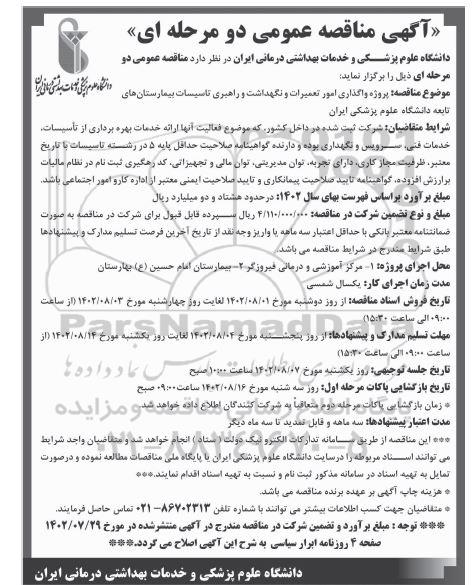 «آگهی مناقصه عمومی دو مرحله ای»
دانشگاه علوم پزشکی و خدمات بهداشتی درمانی ایران در نظر دارد مناقصه عمومی دو
مرحله ای ذیل را برگزار نماید:
موضوع مناقصه: پروژه واگذاری امور تعمیرات و نگهداشت و راهبری تاسیسات بیمارستان‌های
تابعه دانشگاه علوم پزشکی ایران
شرایط متقاضیان: شرکت ثبت شده در داخل کشور، که موضوع فعالیت آنها ارائه خدمات بهره برداری از تأسیسات،
خدمات فنی، سرویس و نگهداری بوده و دارنده گواهینامه صلاحیت حداقل پایه ۵ در رشته تاسیسات با تاریخ
معتبر، ظرفیت مجاز کاری، دارای تجربه، توان مدیریتی، توان مالی و تجهیزاتی، کد رهگیری ثبت نام در نظام مالیات
برارزش افزوده، گواهینامه تایید صلاحیت پیمانکاری و تایید صلاحیت ایمنی معتبر از اداره کارو امور اجتماعی باشد.
مبلغ برآورد براساس فهرست بهای سال ۱۴۰۲: درحدود هشتاد و دو میلیارد ریال
مبلغ و نوع تضمین شرکت در مناقصه: ۴/۱۱۰/۰۰۰/۰۰۰ ریال سپرده قابل قبول برای شرکت در مناقصه به صورت
ضمانتنامه معتبر بانکی با حداقل اعتبار سه ماهه یا واریز وجه نقد از تاریخ آخرین فرصت تسلیم مدارک و پیشنهادها
طبق شرایط مندرج در شرایط مناقصه می باشد.
محل اجرای پروژه: ۱- مرکز آموزشی و درمانی فیروزگر ۲- بیمارستان امام حسین (ع) بهارستان
مدت زمان اجرای کار: یکسال شمسی
تاریخ فروش اسناد مناقصه: از روز دوشنبه مورخ ۱۴۰۲/۰۸/۰۱ لغایت روز چهارشنبه مورخ ۱۴۰۲/۰۸/۰۳ (از ساعت
۰۹:۰۰ الی ساعت ۱۵:۳۰)
مهلت تسلیم مدارک و پیشنهادها: از روز پنجشنبه مورخ ۱۴۰۲/۰۸/۰۴ لغایت روز یکشنبه مورخ ۱۴۰۲/۰۸/۱۴ (از
ساعت ۰۹:۰۰ الی ساعت ۱۵:۳۰)
تاریخ جلسه توجیهی: روز یکشنبه مورخ ۱۴۰۲/۰۸/۰۷ ساعت ۱۰:۰۰ صبح
تاریخ بازگشایی پاکات مرحله اول: روز سه شنبه مورخ ۱۴۰۲/۰۸/۱۶ ساعت ۰۹:۰۰ صبح
* زمان بازگشایی پاکات مرحله دوم متعاقباً به شرکت کنندگان اطلاع داده خواهد شد.
مدت اعتبار پیشنهادها: سه ماهه و قابل تمدید تا سه ماه دیگر
*** این مناقصه از طریق سامانه تدارکات الکترونیک دولت (ستاد) انجام خواهد شد و متقاضیان واجد شرایط
می توانند اسناد مربوطه را درسایت دانشگاه علوم پزشکی ایران یا پایگاه ملی مناقصات مطالعه نموده و درصورت
تمایل به تهیه اسناد در سامانه مذکور ثبت نام و نسبت به تهیه اسناد اقدام نمایند.***
* هزینه چاپ آگهی بر عهده برنده مناقصه می باشد.
* متقاضیان جهت کسب اطلاعات بیشتر می توانند با شماره تلفن ۸۶۷۰۲۳۱۳-۰۲۱ تماس حاصل فرمایند.
*** توجه : مبلغ برآورد و تضمین شرکت در مناقصه مندرج در آگهی منتشرشده در مورخ ۱۴۰۲/۰۷/۲۹
صفحه ۴ روزنامه ابرار سیاسی به شرح این آگهی اصلاح می گردد.***
دانشگاه علوم پزشکی و خدمات بهداشتی درمانی ایران